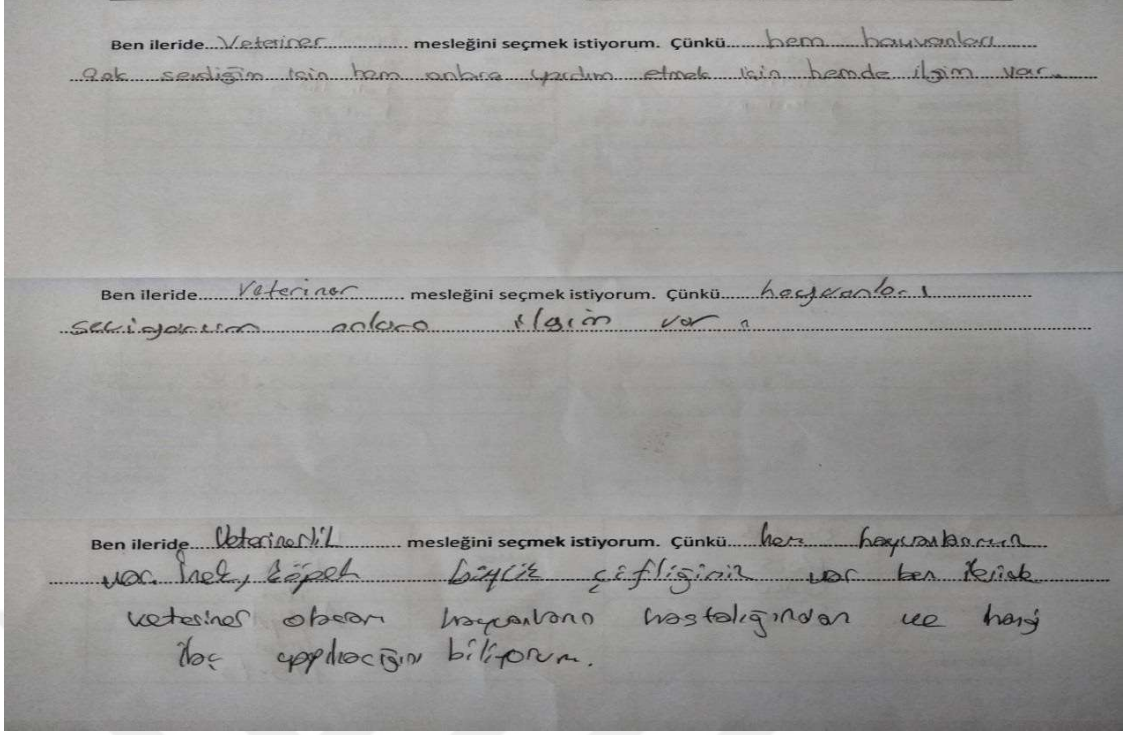 Ben ileride...Veteriner............... mesleğini seçmek istiyorum. Çünkü......hem hayvanları........
çok sevdiğim için hem onlara yardım etmek için hemde ilgim var.
Ben ileride.......Veteriner......... mesleğini seçmek istiyorum. Çünkü......hayvanları
seviyorum onlara ilgim var.
Ben ileride....Veterinerlik............ mesleğini seçmek istiyorum. Çünkü......hayvanlarımın
var. İnek, köpek büyük çifliğimiz var ben ileride
veteriner olsam hayvanların hastalığından ve hangi
ilaç yapılacığını biliyorum.